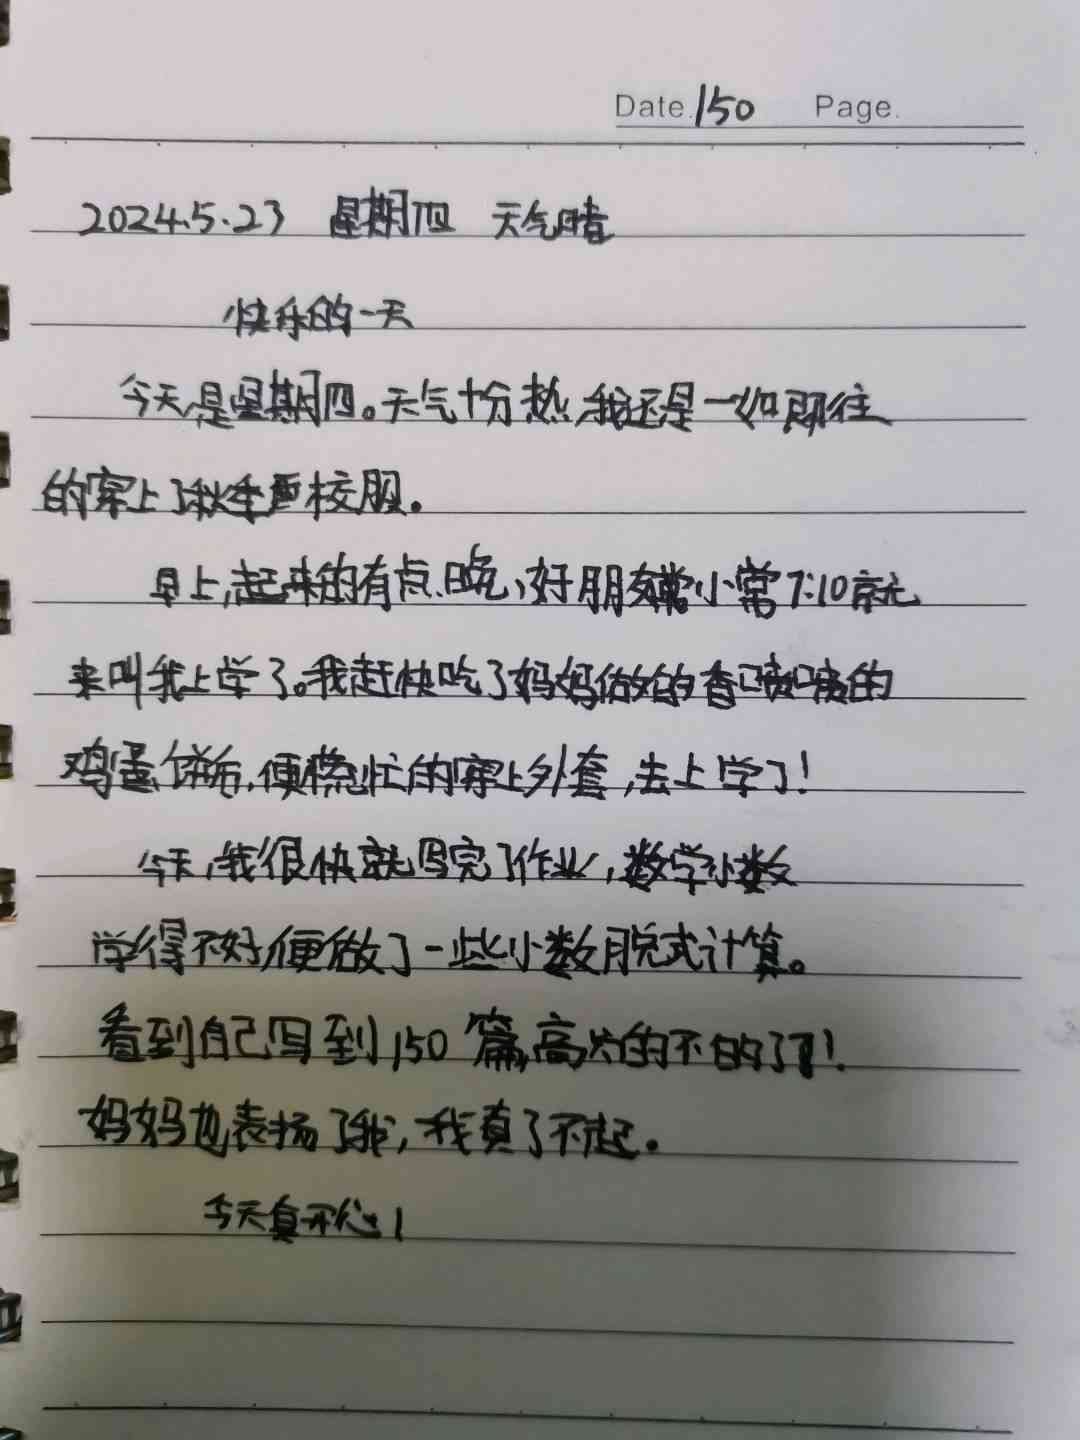 Date.150 Page.
2024.5.23 星期四 天气晴
快乐的一天
今天,是星期四。天气十分热,我还是一如既往
的穿上了秋季校服。
早上,起来的有点晚,好朋友小常7:10就
来叫我上学了。我赶快吃了妈妈做的香喷喷的
鸡蛋饼,便慌忙的穿上外套,去上学了!
今天,我很快就写完了作业,数学小数
学得不好,便做了一些小数脱式计算。
看到自己写到150篇,高兴的不的了!
妈妈也表扬了我,我真了不起。
今天真开心!